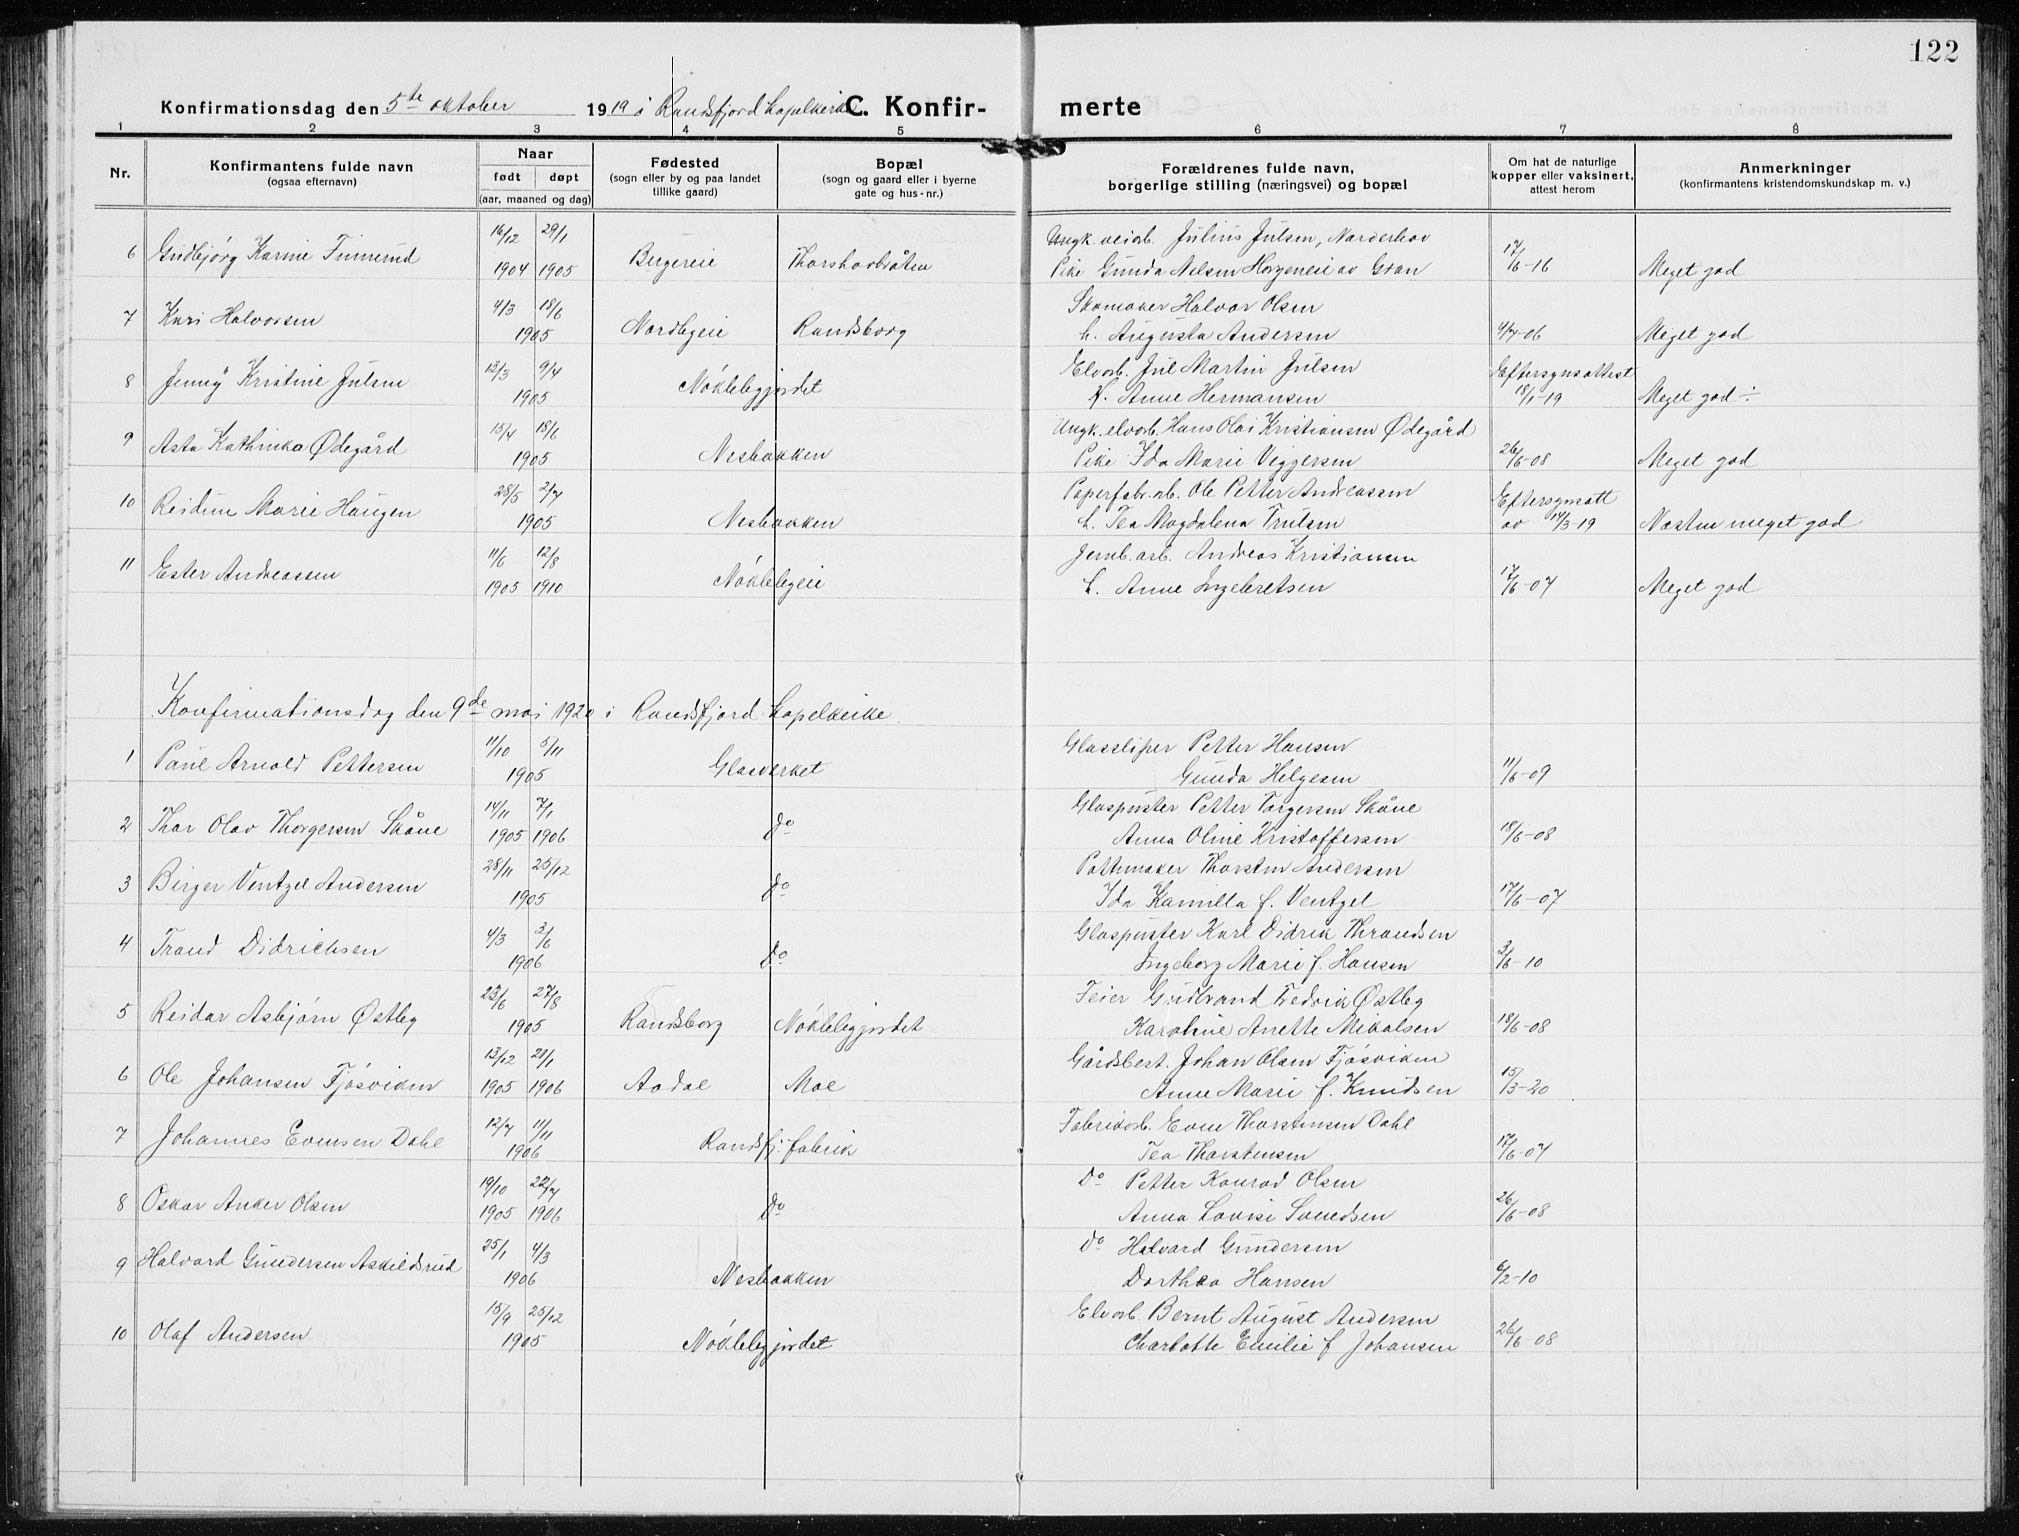 122
Konfirmationsdag den 5te oktober 1919 i Randsfjord kapelkirke. C. Konfirmerte
1 2 3 4 5 6 7 8
Nr. Konfirmantens fulde navn (ogsaa efternavn) Naar født døpt (aar, maaned og dag) Fødested (sogn eller by og paa landet tillike gaard) Bopæl (sogn og gaard eller i byerne gate og hus-nr.) Forældrenes fulde navn, borgerlige stilling (næringsvei) og bopæl Om hat de naturlige kopper eller vaksinert, attest herom Anmerkninger (konfirmantens kristendomskundskap m. v.)
16/12 29/1 Ungk. veiarb. Julius Julsen, Norderhov
6 Gudbjørg Karine Finnerud 1904 1905 Bergereie Thorshovbråten Pike Gunda Nilsen Horgeneie av Gran 17/6-16 Meget god
4/3 18/6 Skomaker Halvor Olsen
7 Kari Halvorsen 1905 Nordbyeie Randsborg h. Augusta Andersen 4/7-06 Meget god
13/3 9/4 Elvarb. Jul Martin Julsen Eftersynsattest
8 Jenny Kristine Julsen 1905 Nøklebygjordet h. Anne Hermansen 18/1-19 Meget god ÷
15/4 18/6 Ungk. elvarb. Hans Olai Kristiansen Ødegård
9 Asta Kathinka Ødegård 1905 Nesbakken Pike Ida Marie Veggersen 26/6-08 Meget god
28/5 2/7 Paperfabr.arb. Ole Petter Andreassen Eftersynsatt
10 Reidun Marie Haugen 1905 Nesbakken h. Tea Magdalena Trulsen av 14/3-19 Næsten meget god
11/6 12/8 Jernb. arb. Andreas Kristiansen
11 Ester Andreassen 1905 1910 Nøklebyeie h. Anne Ingebretsen 17/6-07 Meget god
Konfirmationsdag den 9de mai 1920 i Randsfjord kapelkirke.
11/10 5/11 Glassliper Petter Hansen
1 Paul Arnold Pettersen 1905 Glasverket Gunda Helgesen 11/6-09
14/11 7/1 Glaspuster Petter Torgersen Skåne
2 Thor Olav Thorgersen Skåne 1905 1906 Do Anna Oline Kristoffersen 18/6-08
28/11 25/12 Pottemaker Thorsten Andersen
3 Birger Ventzel Andersen 1905 Do Ida Kamilla f. Ventzel 17/6-07
4/3 3/6 Glaspuster Karl Didrik Throndsen
4 Trond Didrichsen 1906 Do Ingeborg Marie f. Hansen 3/6-10
23/6 27/8 Feier Gudbrand Fredrik Østby
5 Reidar Asbjørn Østby 1905 Randsborg Nøklebygjordet Karoline Anette Mikalsen 18/6-08
13/12 28/1 Gårdsbest. Johan Olsen Fjøsviken
6 Ole Johansen Fjøsviken 1905 1906 Aadal Moe Anne Marie f. Knudsen 15/3-20
12/7 11/11 Fabrikarb. Even Thorstensen Dahl
7 Johannes Evensen Dahl 1906 Randsfj. fabrik Tea Thorstensen 17/6-07
19/10 22/7 Do Petter Konrad Olsen
8 Oskar Anker Olsen 1905 1906 Do Anna Lovise Svendsen 26/6-08
25/1 4/3 Do Halvard Gundersen
9 Halvard Gundersen Askildsrud 1906 Nesbakken Dorthea Hansen 6/2-10
15/9 25/12 Elvarb. Bernt August Andersen
10 Olaf Andersen 1905 Nøklebygjordet Charlotte Emilie f Johansen 26/6-08